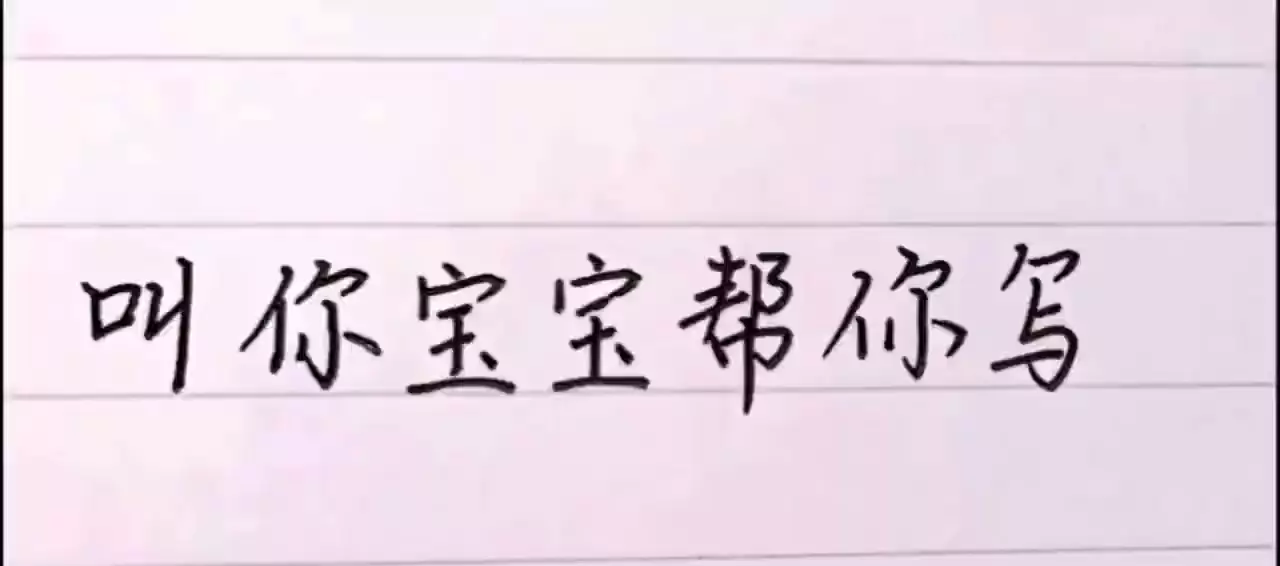 叫你宝宝帮你写